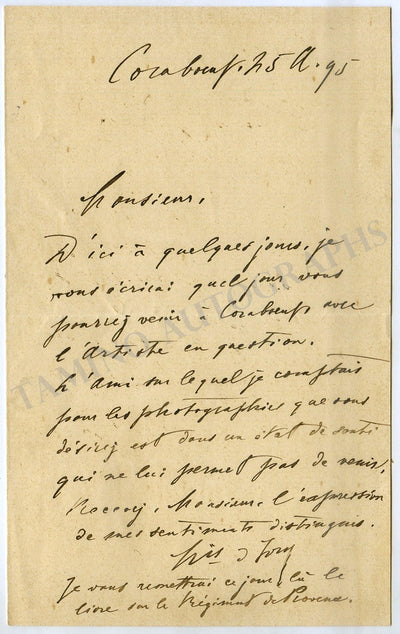 Corabœuf. 25 A. 95
Monsieur,
D'ici à quelques jours, je
vous écrirai quel jour vous
pourrez venir à Corabœuf avec
l'Artiste en question.
L'ami sur lequel je comptais
pour les photographies que vous
désirez est dans un état de santé
qui ne lui permet pas de venir.
Recevez, Monsieur, l'expression
de mes sentiments distingués.
Je vous remettrai ce jour là le
livre sur le Régiment de Provence.
TAMINO AUTOGRAPHS